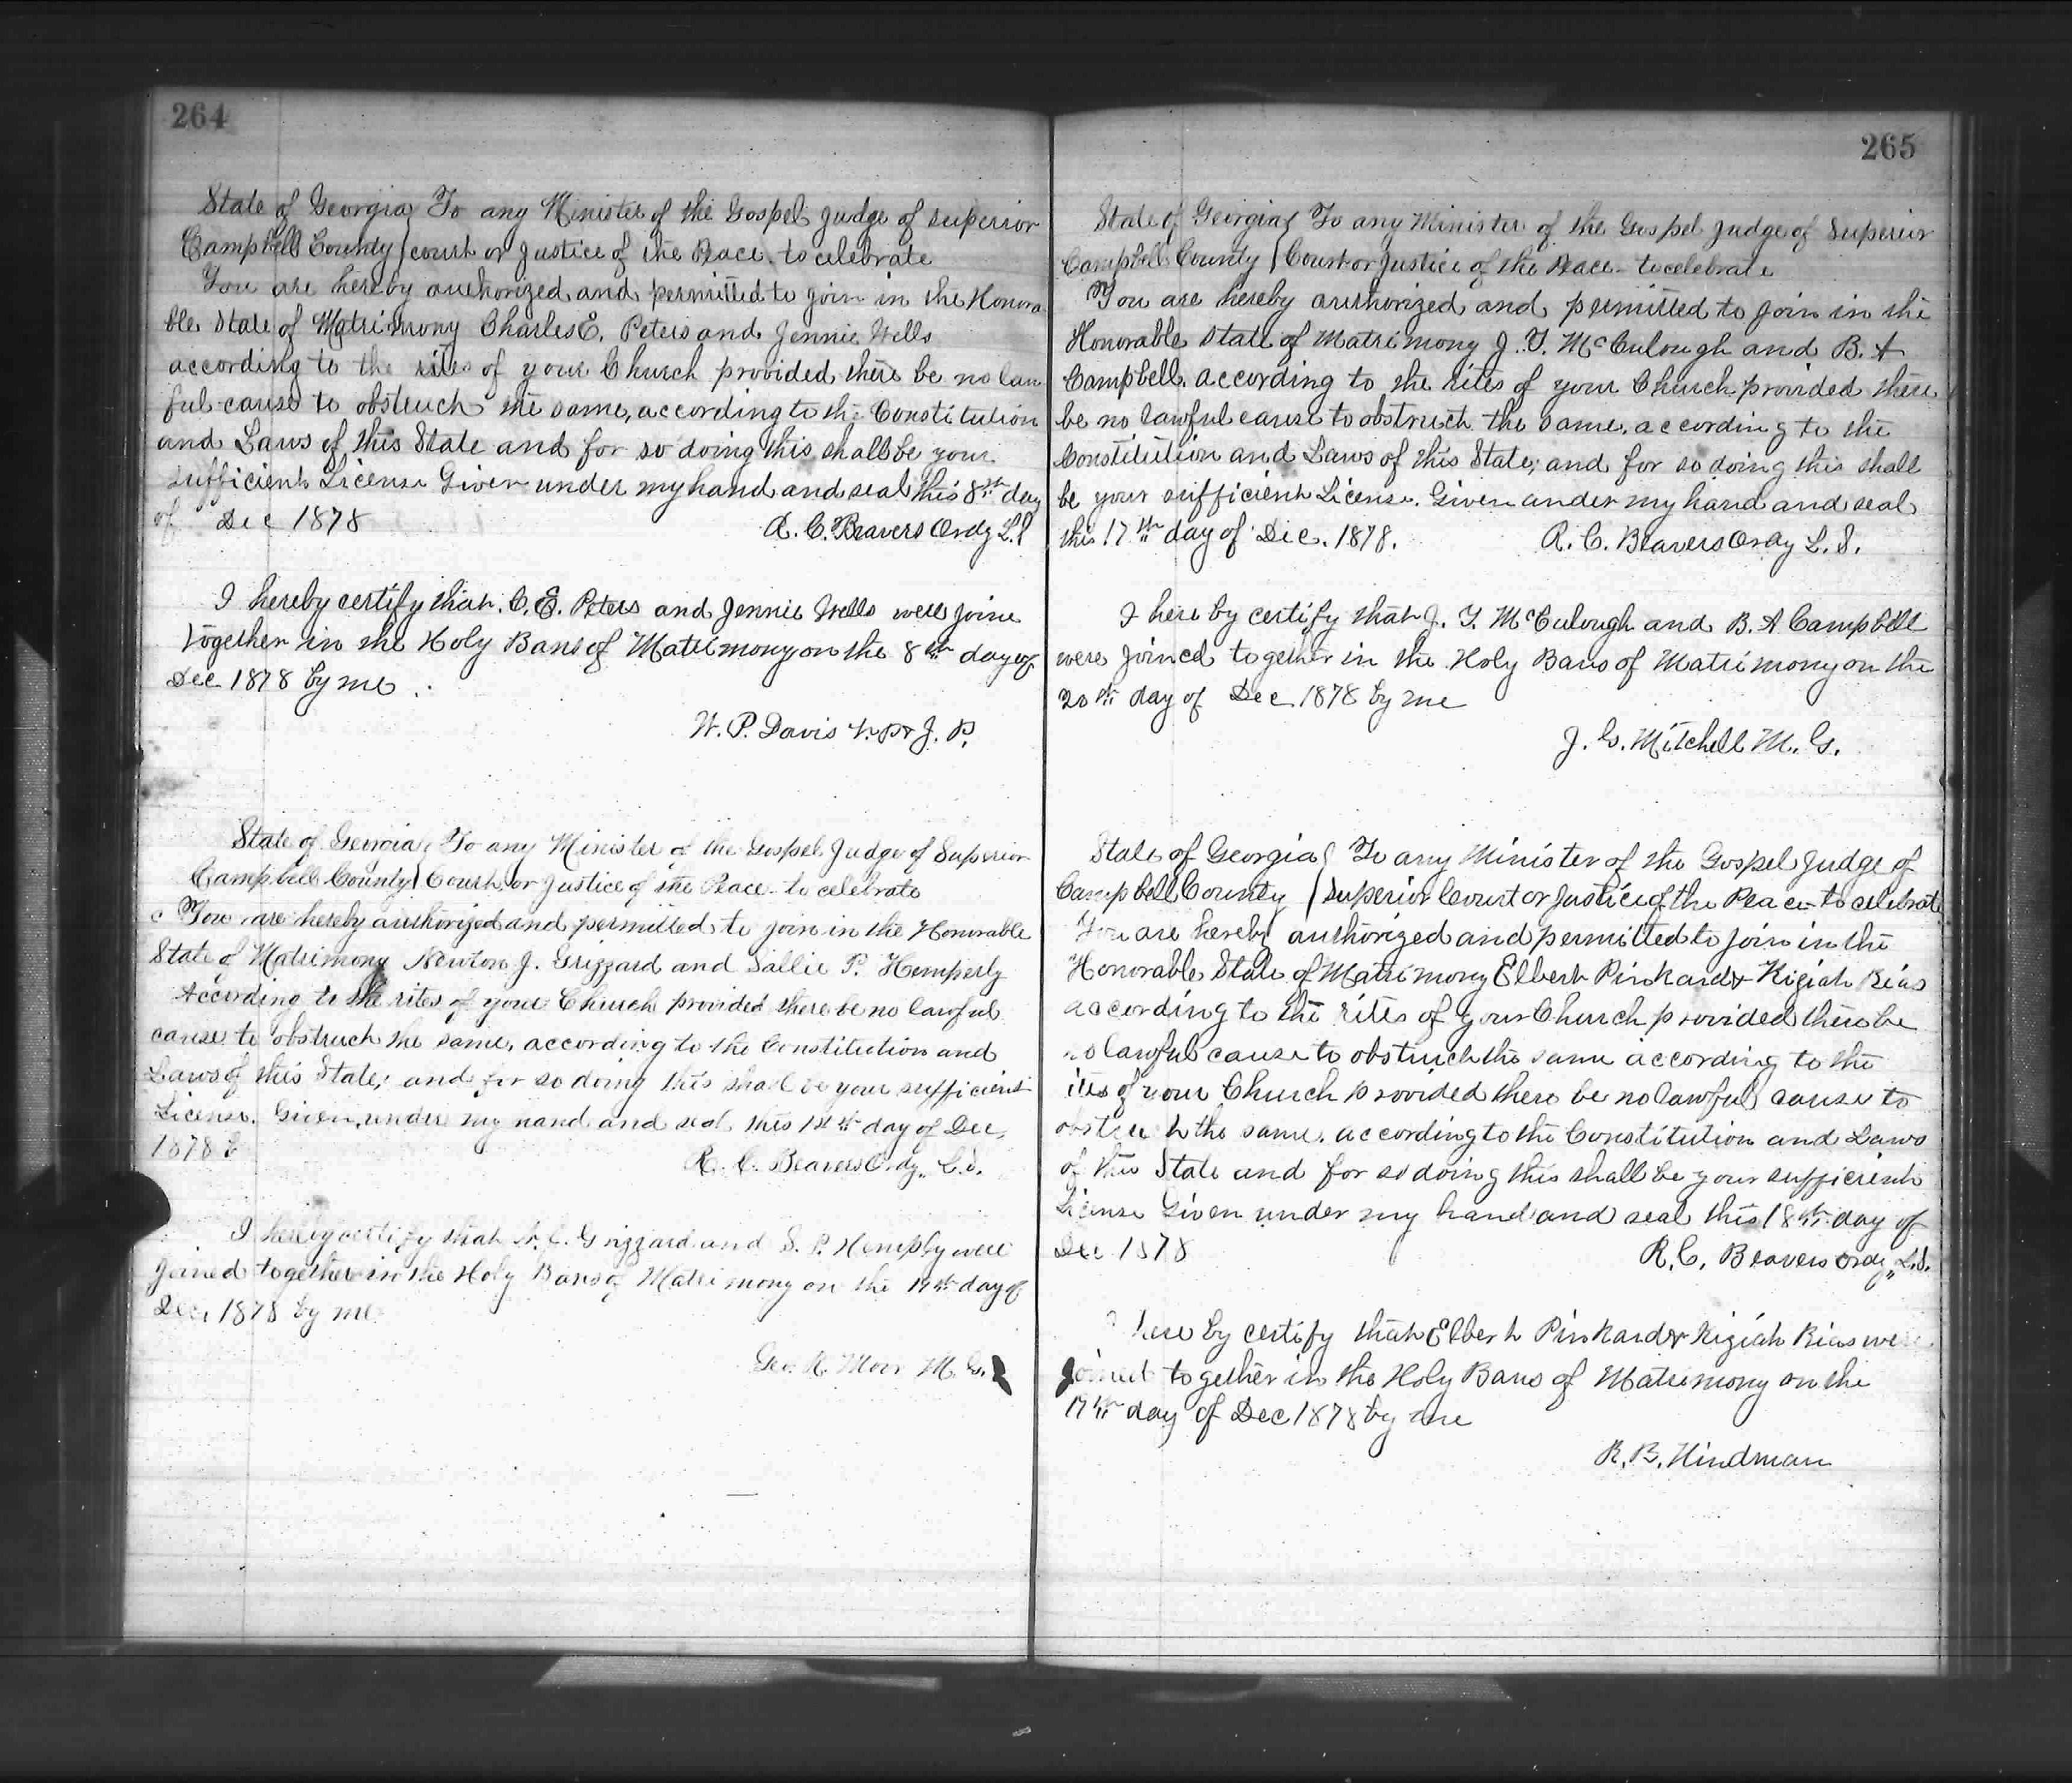 264
State of Georgia } To any Minister of the Gospel Judge of superior
Campbell County } court or Justice of the Peace to celebrate
You are hereby authorized and permitted to join in the Honora
ble State of Matrimony Charles E. Peters and Jennie Wells
according to the rites of your Church provided there be no law
ful cause to obstruct the same, according to the Constitution
and Laws of this State and for so doing this shall be your
sufficient License Given under my hand and seal this 8th day
of Dec 1878 R. C. Beavers Ordy L.S
I hereby certify that C. E. Peters and Jennie Wells were joine
together in the Holy Bans of Matrimony on the 8th day of
Dec 1878 by me
W. P. Davis J. P.
State of Georgia } To any Minister of the Gospel Judge of Superior
Campbell County } Court or Justice of the Peace to celebrate
You are hereby authorized and permitted to join in the Honorable
State of Matrimony Newton J. Grizzard and Sallie P. Hemperly
According to the rites of your Church provided there be no lawful
cause to obstruct the same, according to the Constitution and
Laws of this State; and for so doing this shall be your sufficient
License. Given under my hand and seal this day of Dec,
1878 R. C. Beavers Ordy. L.S.
I hereby certify that Grizzard and S. P. Hemply were
joined together in the Holy Bans of Matrimony on the 17th day of
Dec, 1878 by me
Geo. R. Moor M. G.
265
State of Georgia } To any Minister of the Gospel Judge of Superior
Campbell County } Court or Justice of the Peace to celebrate
You are hereby authorized and permitted to join in the
Honorable State of Matrimony J. T. McCulough and B. A
Campbell. according to the rites of your Church provided there
be no lawful cause to obstruct the same, according to the
Constitution and Laws of this State; and for so doing this shall
be your sufficient License. Given under my hand and seal
this 17th day of Dec. 1878. R. C. Beavers Orday L. S.
I here by certify that J. T. McCulough and B. A Campbell
were joined together in the Holy Bans of Matrimony on the
20th day of Dec 1878 by me
J. G. Mitchell M. G.
State of Georgia } To any Minister of the Gospel Judge of
Campbell County } superior Court or Justice of the Peace to celebrate
You are hereby authorized and permitted to join in the
Honorable State of Matrimony Elbert Pinkard & Kiziah Bias
according to the rites of your Church provided there be
no lawful cause to obstruct the same according to the
ites of your Church provided there be no lawful cause to
obstruct the same. according to the Constitution and Laws
of this State and for so doing this shall be your sufficient
License Given under my hand and seal this 18th day of
Dec 1878 R. C. Beavers Ordy L.S.
I here by certify that Elbert Pinkard & Kiziah Bias were
joined together in the Holy Bans of Matrimony on the
17th day of Dec 1878 by me
R. B. Hindman